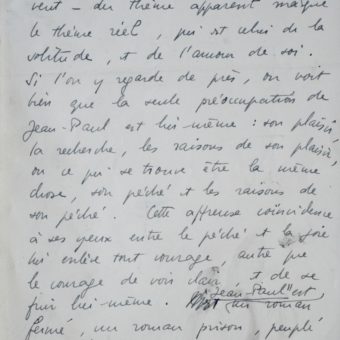 veut – du thème apparent masque
le thème réel, qui est celui de la
solitude, et de l'amour de soi.
Si l'on y regarde de près, on voit
bien que la seule préoccupation de
Jean-Paul est lui-même : son plaisir,
la recherche, les raisons de son plaisir,
ou ce qui se trouve être la même
chose, son péché et les raisons de
son péché. Cette affreuse coïncidence
à ses yeux entre le péché et la joie
lui enlève tout courage, autre que
le courage de voir clair et de se
fuir lui-même. "Jean-Paul" est
un roman
fermé, un roman prison, peuplé